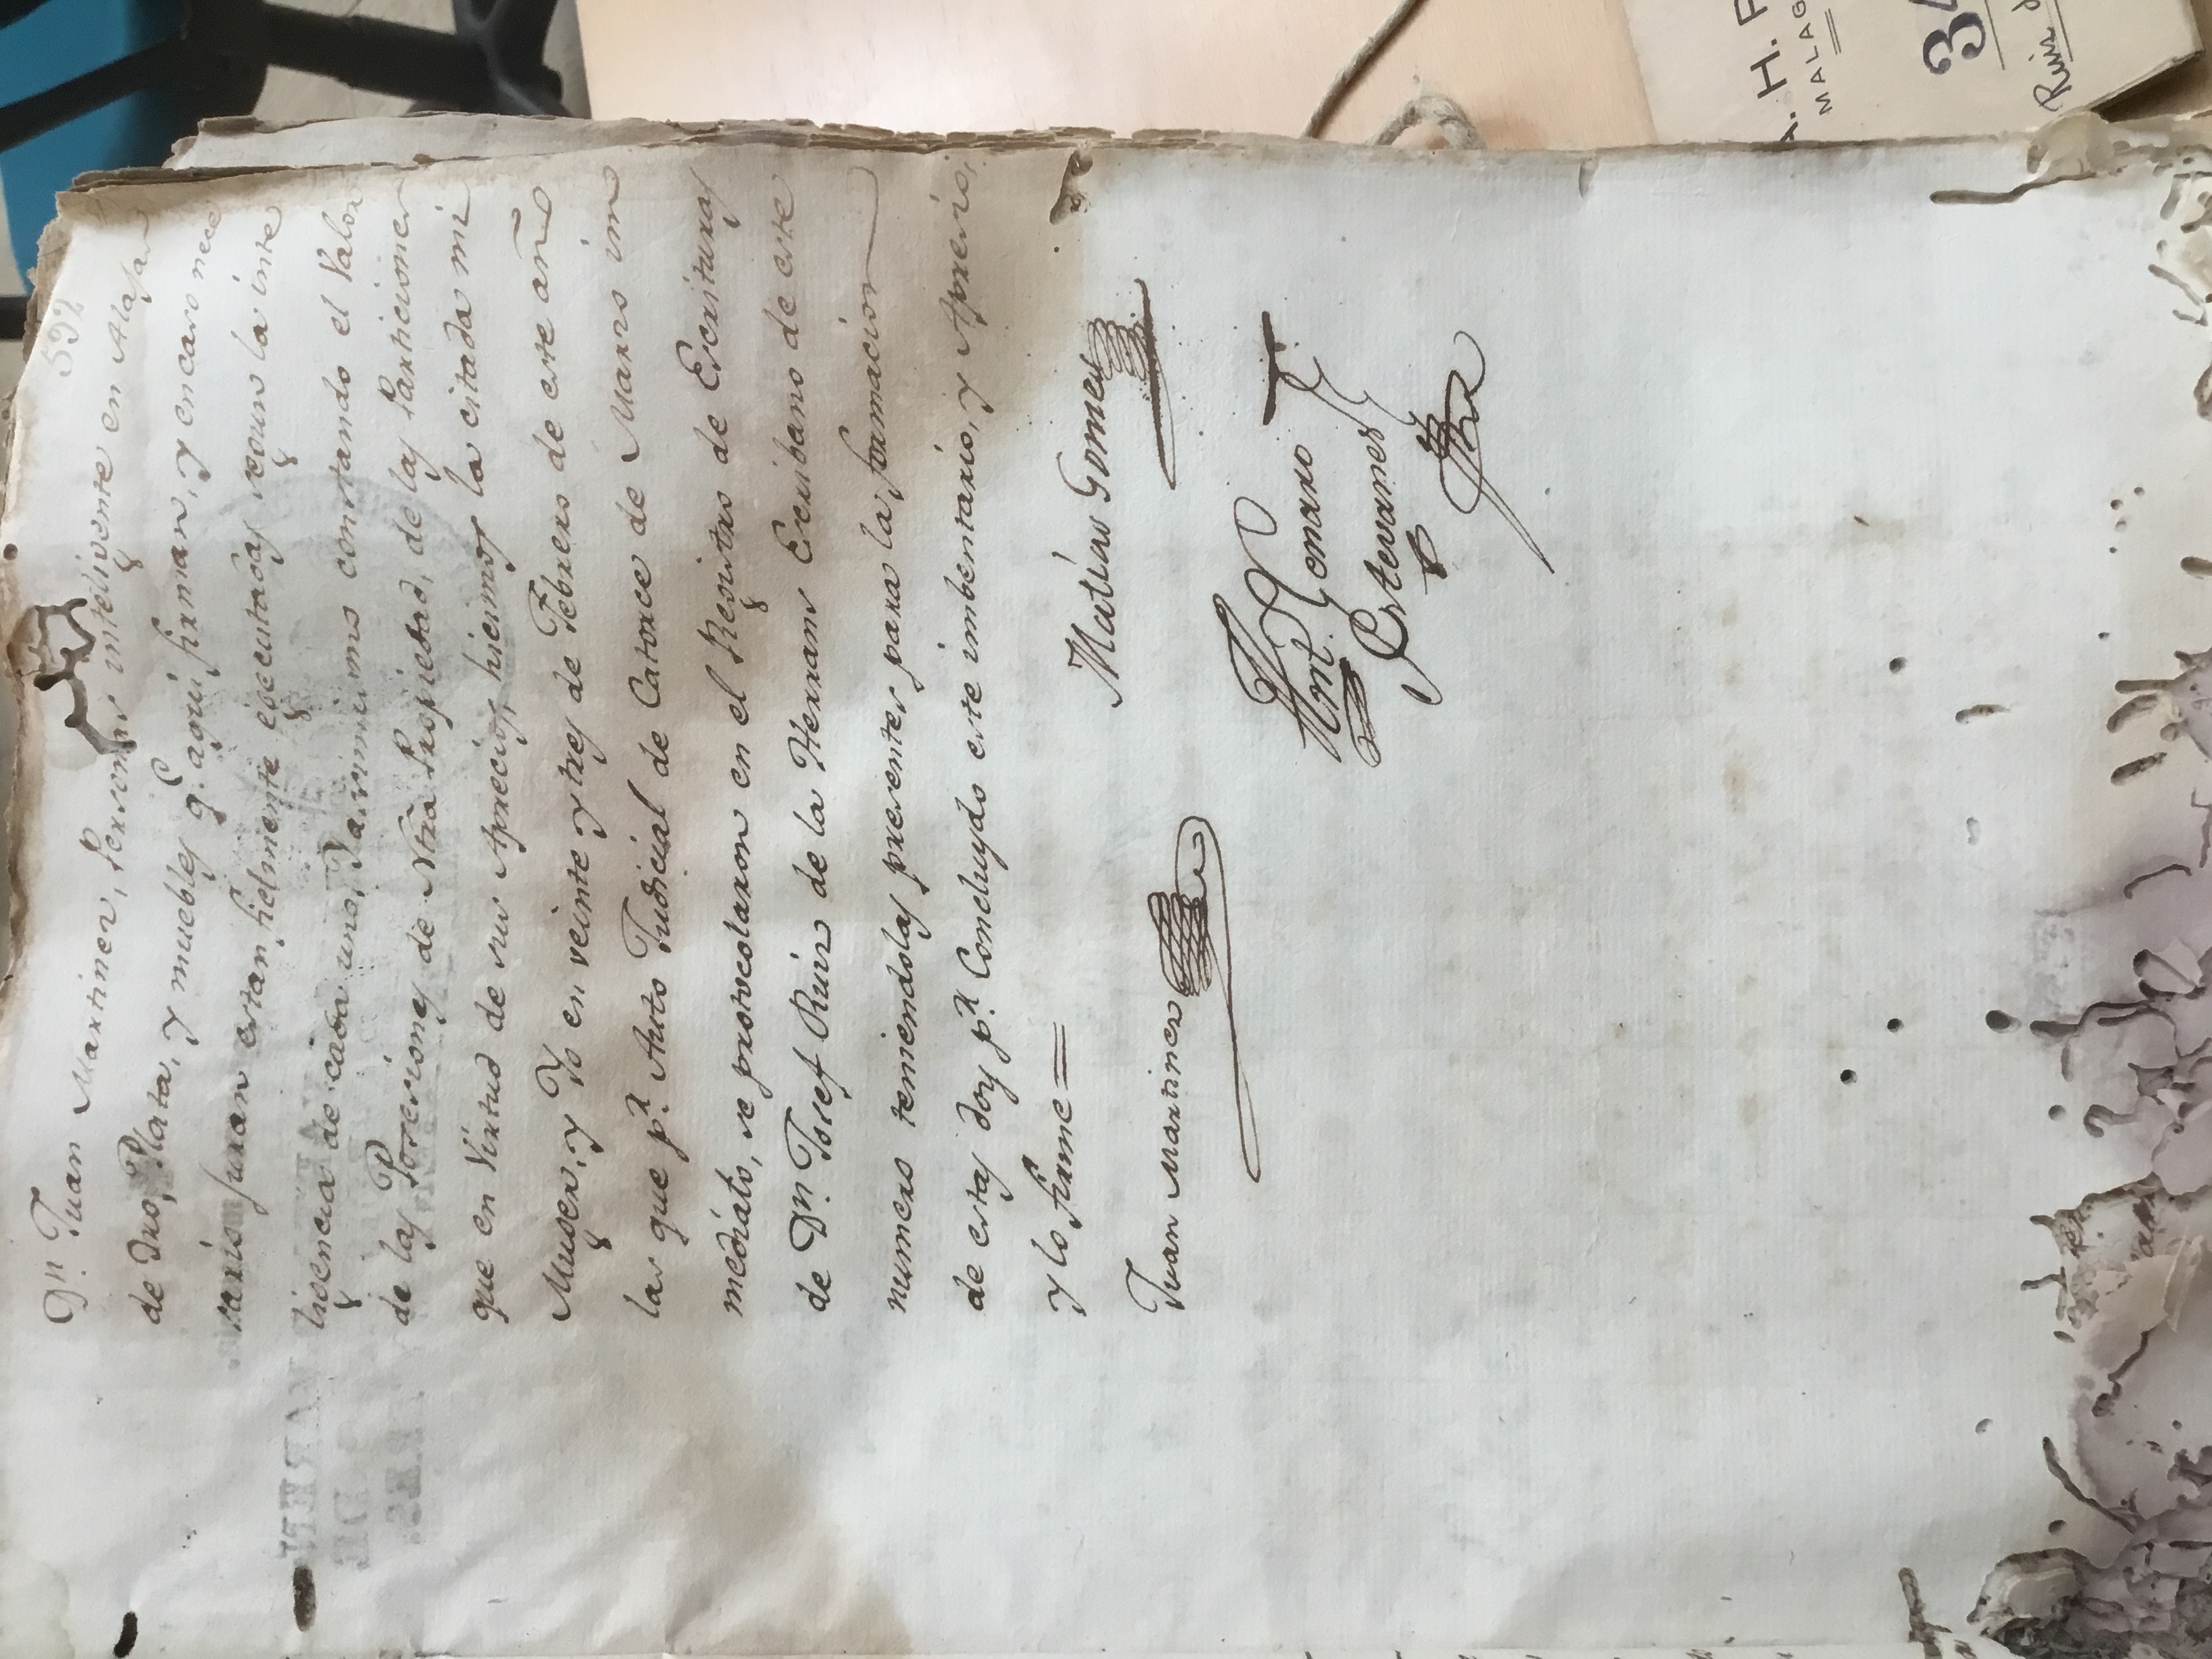 592
Dn. Juan Martinez, Personas intelixente en Alajas
de Oro, Plata, y muebles q.e aqui firman, y encaso nece
sario juran estan fielmente egecutadas segun la inte
ligencia de cada uno, Da
 constando el Valor
de las Poseciones de Ntra Propiedad, de las Particiones
que en Virtud de sus Aprecios hicimos la citada mi
Muger, y Yo en veinte y tres de Febrero de este año
las que p.r Auto Judicial de Catorce de Marzo im
mediato, se protocolaron en el Registro de Escrituras
de Dn. Josef Ruiz de la Herran Escribano de este
numero teniendolas presentes para la formacion
de estas doy p.r Concluydo este imbentario, y Aprecio,
y lo firme =
Juan Martinez
Matias Gomez
Ant. Genaro
Estevanez
A. H. P.
MALAG
34
Ruiz d